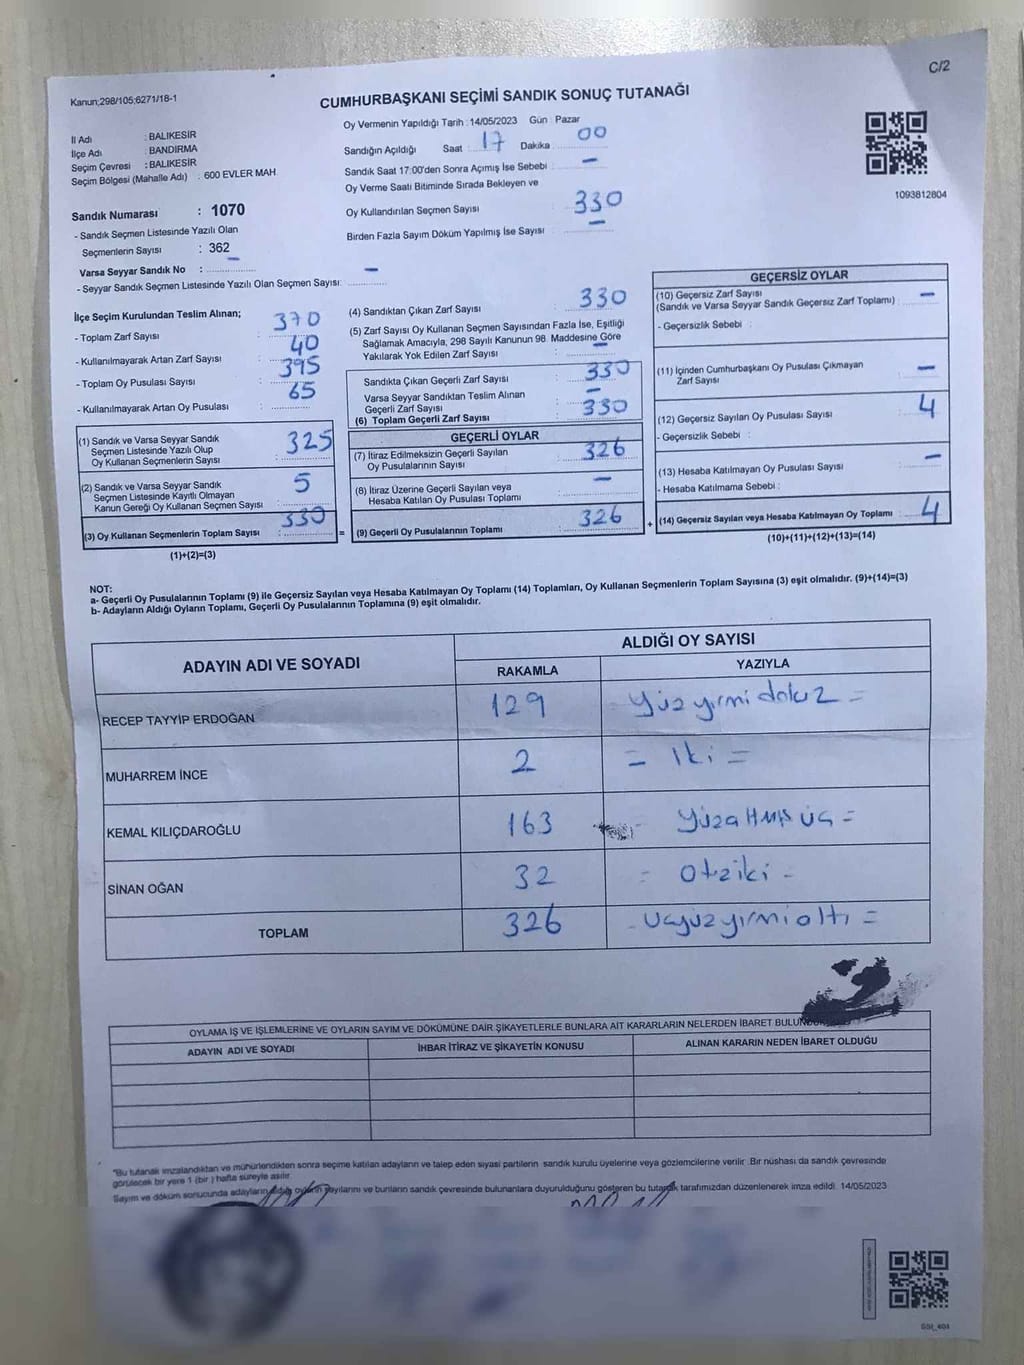 C/2
Kanun;298/105;6271/18-1
CUMHURBAŞKANI SEÇİMİ SANDIK SONUÇ TUTANAĞI
İl Adı : BALIKESİR
İlçe Adı : BANDIRMA
Seçim Çevresi : BALIKESİR
Seçim Bölgesi (Mahalle Adı) : 600 EVLER MAH.
Sandık Numarası : 1070
- Sandık Seçmen Listesinde Yazılı Olan
Seçmenlerin Sayısı : 362
Varsa Seyyar Sandık No : –
- Seyyar Sandık Seçmen Listesinde Yazılı Olan Seçmen Sayısı: –
Oy Vermenin Yapıldığı Tarih : 14/05/2023 Gün : Pazar
Sandığın Açıldığı Saat : 17 Dakika : 00
Sandık Saat 17:00'den Sonra Açımış İse Sebebi : –
Oy Verme Saati Bitiminde Sırada Bekleyen ve
Oy Kullandırılan Seçmen Sayısı : 330
Birden Fazla Sayım Döküm Yapılmış İse Sayısı : –
1093812804
İlçe Seçim Kurulundan Teslim Alınan;
- Toplam Zarf Sayısı : 370
- Kullanılmayarak Artan Zarf Sayısı : 40
- Toplam Oy Pusulası Sayısı : 395
- Kullanılmayarak Artan Oy Pusulası : 65
(1) Sandık ve Varsa Seyyar Sandık
Seçmen Listesinde Yazılı Olup
Oy Kullanan Seçmenlerin Sayısı : 325
(2) Sandık ve Varsa Seyyar Sandık
Seçmen Listesinde Kayıtlı Olmayan
Kanun Gereği Oy Kullanan Seçmen Sayısı : 5
(3) Oy Kullanan Seçmenlerin Toplam Sayısı : 330
(1)+(2)=(3)
=
(4) Sandıktan Çıkan Zarf Sayısı : 330
(5) Zarf Sayısı Oy Kullanan Seçmen Sayısından Fazla İse, Eşitliği
Sağlamak Amacıyla, 298 Sayılı Kanunun 98. Maddesine Göre
Yakılarak Yok Edilen Zarf Sayısı : –
Sandıkta Çıkan Geçerli Zarf Sayısı : 330
Varsa Seyyar Sandıktan Teslim Alınan
Geçerli Zarf Sayısı : –
(6) Toplam Geçerli Zarf Sayısı : 330
GEÇERLİ OYLAR
(7) İtiraz Edilmeksizin Geçerli Sayılan
Oy Pusulalarının Sayısı : 326
(8) İtiraz Üzerine Geçerli Sayılan veya
Hesaba Katılan Oy Pusulası Toplamı : –
(9) Geçerli Oy Pusulalarının Toplamı : 326
+
GEÇERSİZ OYLAR
(10) Geçersiz Zarf Sayısı
(Sandık ve Varsa Seyyar Sandık Geçersiz Zarf Toplamı) : –
- Geçersizlik Sebebi :
(11) İçinden Cumhurbaşkanı Oy Pusulası Çıkmayan
Zarf Sayısı : –
(12) Geçersiz Sayılan Oy Pusulası Sayısı : 4
- Geçersizlik Sebebi :
(13) Hesaba Katılmayan Oy Pusulası Sayısı : –
- Hesaba Katılmama Sebebi :
(14) Geçersiz Sayılan veya Hesaba Katılmayan Oy Toplamı : 4
(10)+(11)+(12)+(13)=(14)
NOT:
a- Geçerli Oy Pusulalarının Toplamı (9) ile Geçersiz Sayılan veya Hesaba Katılmayan Oy Toplamı (14) Toplamları, Oy Kullanan Seçmenlerin Toplam Sayısına (3) eşit olmalıdır. (9)+(14)=(3)
b- Adayların Aldığı Oyların Toplamı, Geçerli Oy Pusulalarının Toplamına (9) eşit olmalıdır.
ADAYIN ADI VE SOYADI
ALDIĞI OY SAYISI
RAKAMLA YAZIYLA
RECEP TAYYİP ERDOĞAN 129 yüz yirmi dokuz =
MUHARREM İNCE 2 = İki =
KEMAL KILIÇDAROĞLU 163 = yüzaltmış üç =
SİNAN OĞAN 32 = otziki -
TOPLAM 326 - üçyüzyirmialtı =
OYLAMA İŞ VE İŞLEMLERİNE VE OYLARIN SAYIM VE DÖKÜMÜNE DAİR ŞİKAYETLERLE BUNLARA AİT KARARLARIN NELERDEN İBARET
ADAYIN ADI VE SOYADI İHBAR İTİRAZ VE ŞİKAYETİN KONUSU ALINAN KARARIN NEDEN İBARET OLDUĞU
"Bu tutanak imzalandıktan ve mühürlendikten sonra seçime katılan adayların ve talep eden siyasi partilerin sandık kurulu üyelerine veya gözlemcilerine verilir. Bir nüshası da sandık çevresinde
görülecek bir yere 1 (bir ) hafta süreyle asılır.
Sayım ve döküm sonucunda adayların aldığı oyların sayılarını ve bunların sandık çevresinde bulunanlara duyurulduğunu gösteren bu tutanak tarafımızdan düzenlenerek imza edildi. 14/05/2023